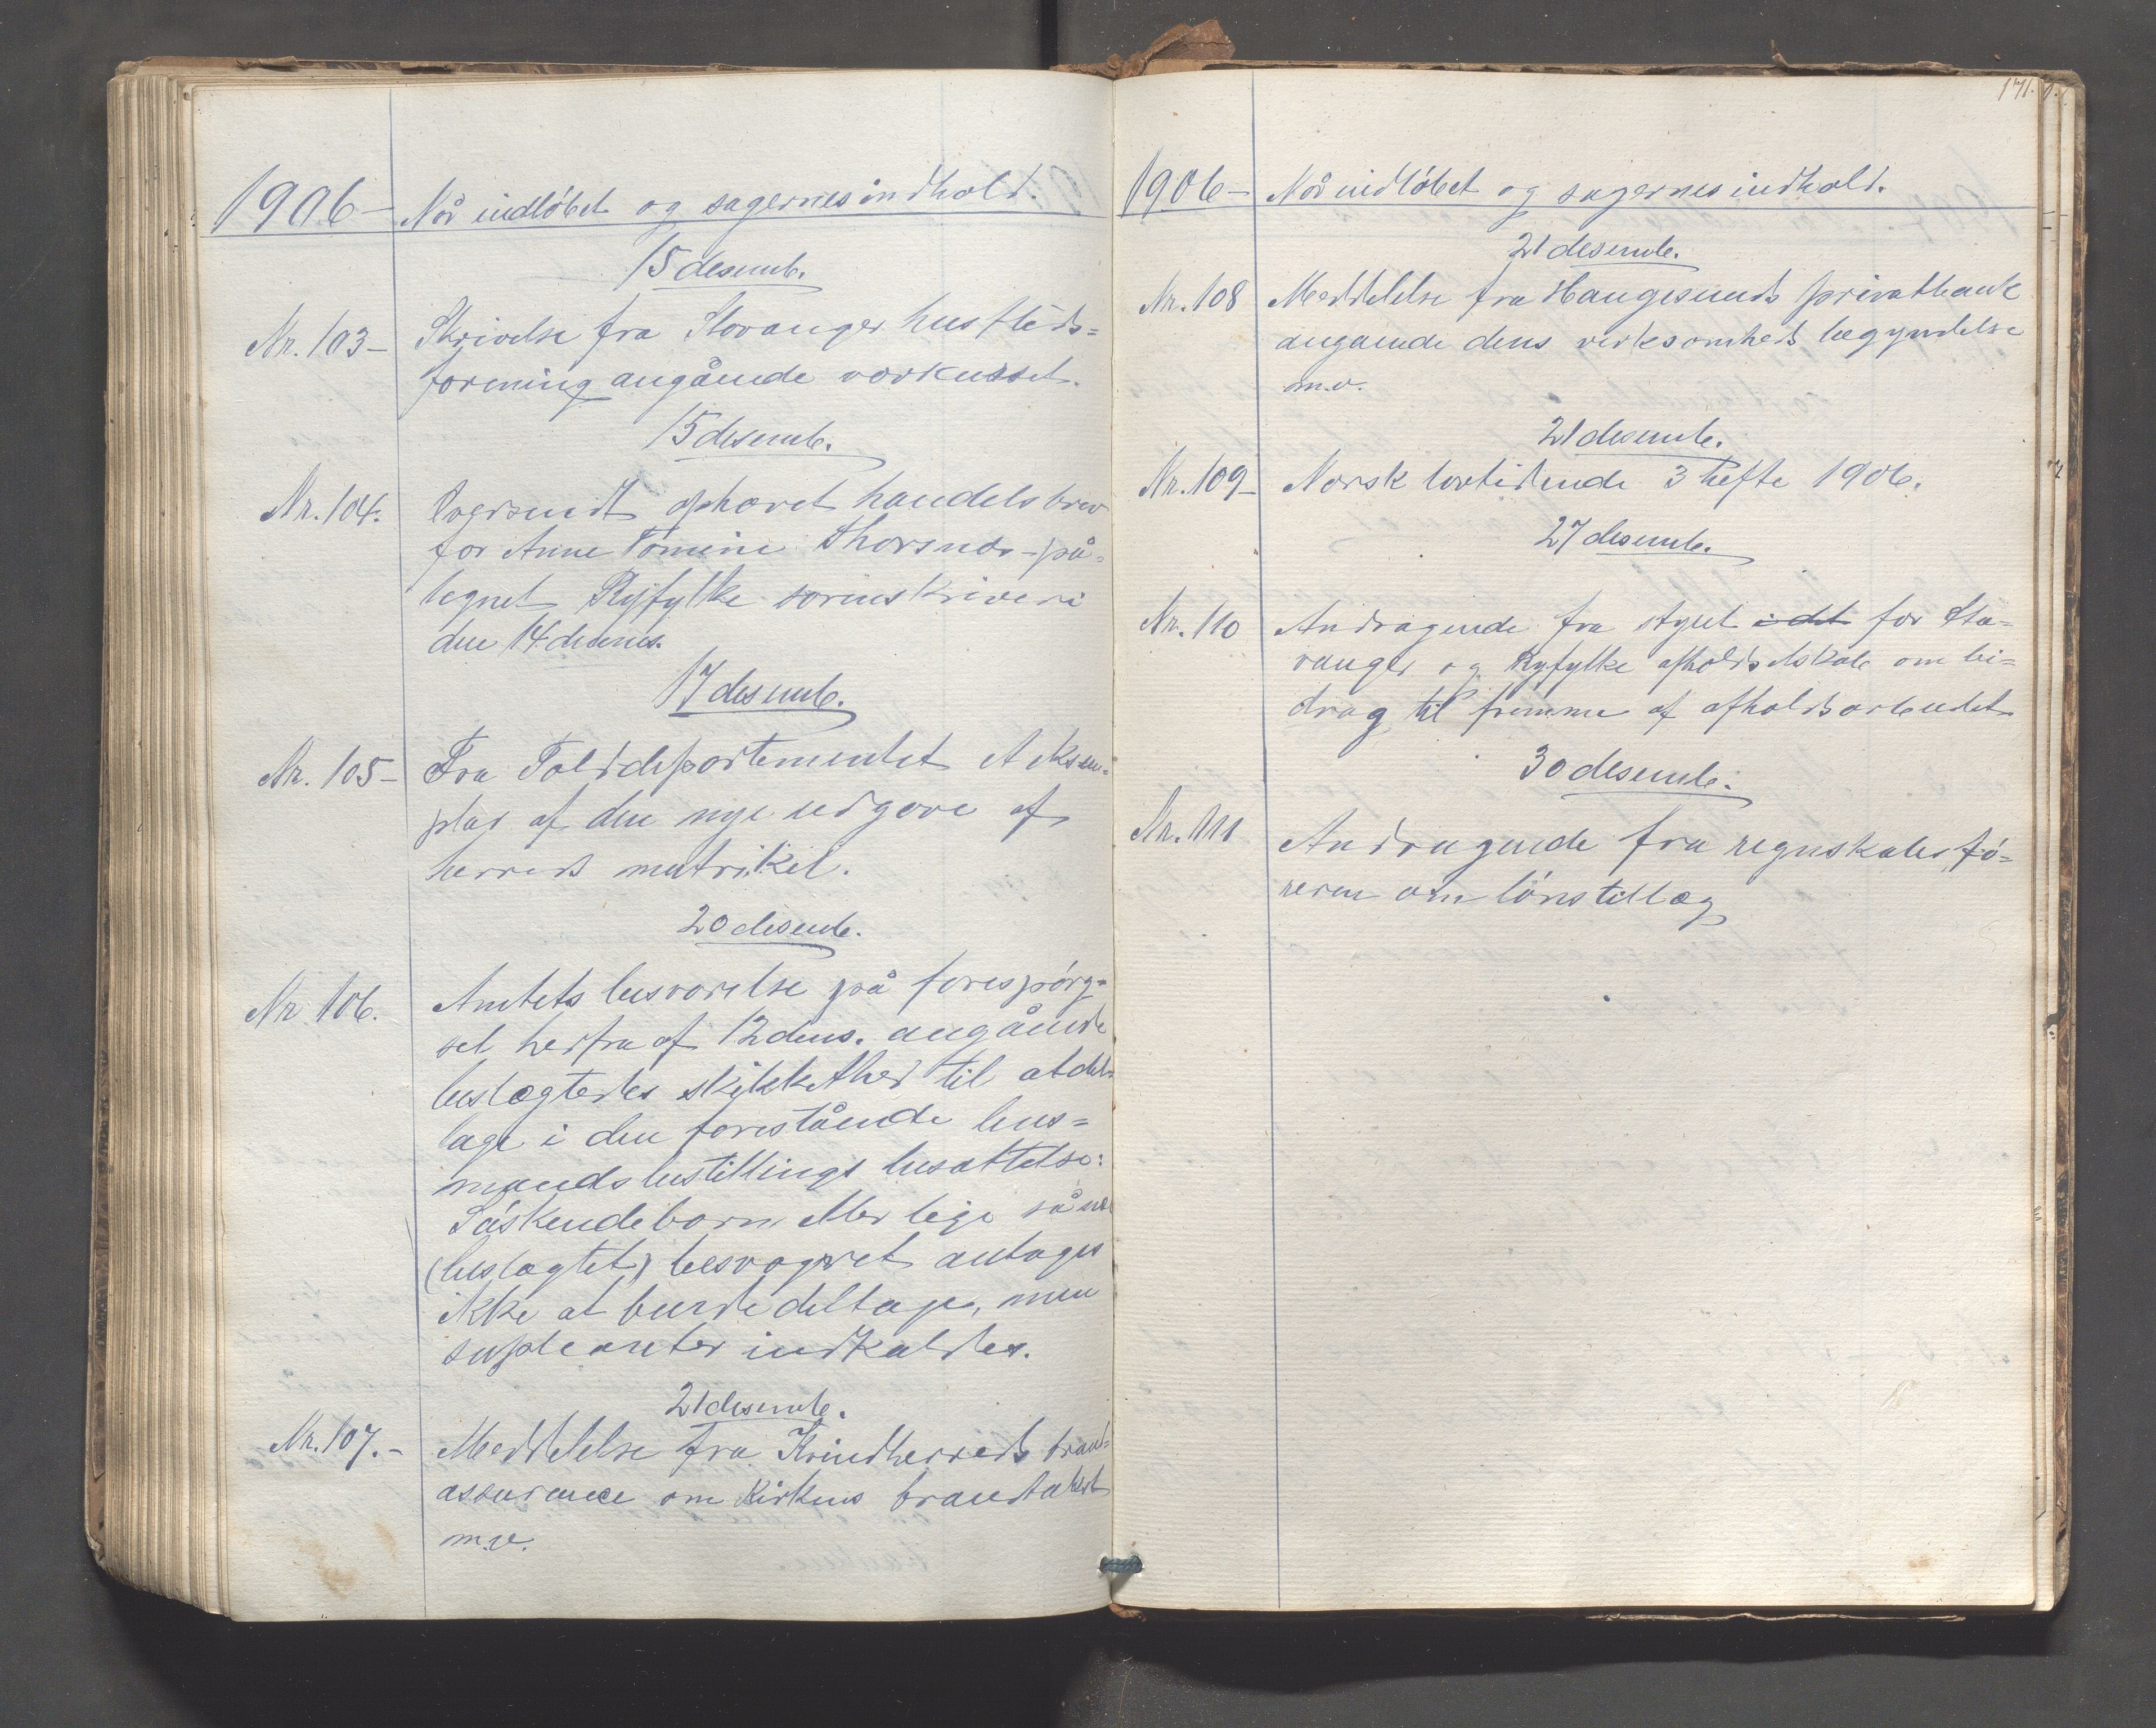 1906 – Når indløbet og sagernes indhold.
15 desemb.
Nr. 103 – Skrivelse fra Stavanger husflids=
forening angående vævkurset.
15 desemb.
Nr. 104. Oversendt ophævet handelsbrev
for Anne Tomine Thorsnes – på=
tegnet Ryfylke sorenskriveri
den 14 dennes.
17 desemb.
Nr. 105 – Fra Tolddepartementet et eksem=
plar af den nye udgave af
herreds matrikel.
20 desemb.
Nr 106. Amtets besvarelse på forespørg=
sel herfra af 12 dens. angående
beslægtedes skikkethed til at del=
tage i den forestående lens=
mandsbestillings besættelse:
Søskendebørn eller lige så nær
(beslægtet) besvogret antages
ikke at burde deltage, men
supleanter indkaldes.
21 desemb.
Nr. 107. – Meddelelse fra Kvindherreds brand=
assurance om kirkens brandtakst
m.v.
171.
1906 – Når indløbet og sagernes indhold.
21 desemb.
Nr. 108 Meddelelse fra Haugesunds privatbank
angaaende dens virksomheds begyndelse
m.v.
21 desemb.
Nr. 109 – Norsk lovtidende 3 hefte 1906.
27 desemb.
Nr. 110 Andragende fra styret i det for Sta=
vanger og Ryfylke afholdsselskab om bi=
drag til fremme af afholdsarbeidet
30 desemb.
Nr. 111 Andragende fra regnskabsfø=
reren om lønstillæg